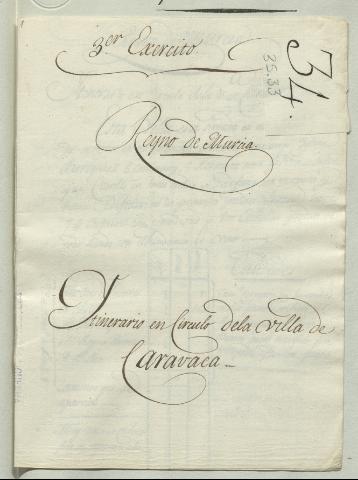 3er Exercito.
34.
35.33
Reyno de Murcia.
Itinerario en Circulo dela Villa de
Caravaca